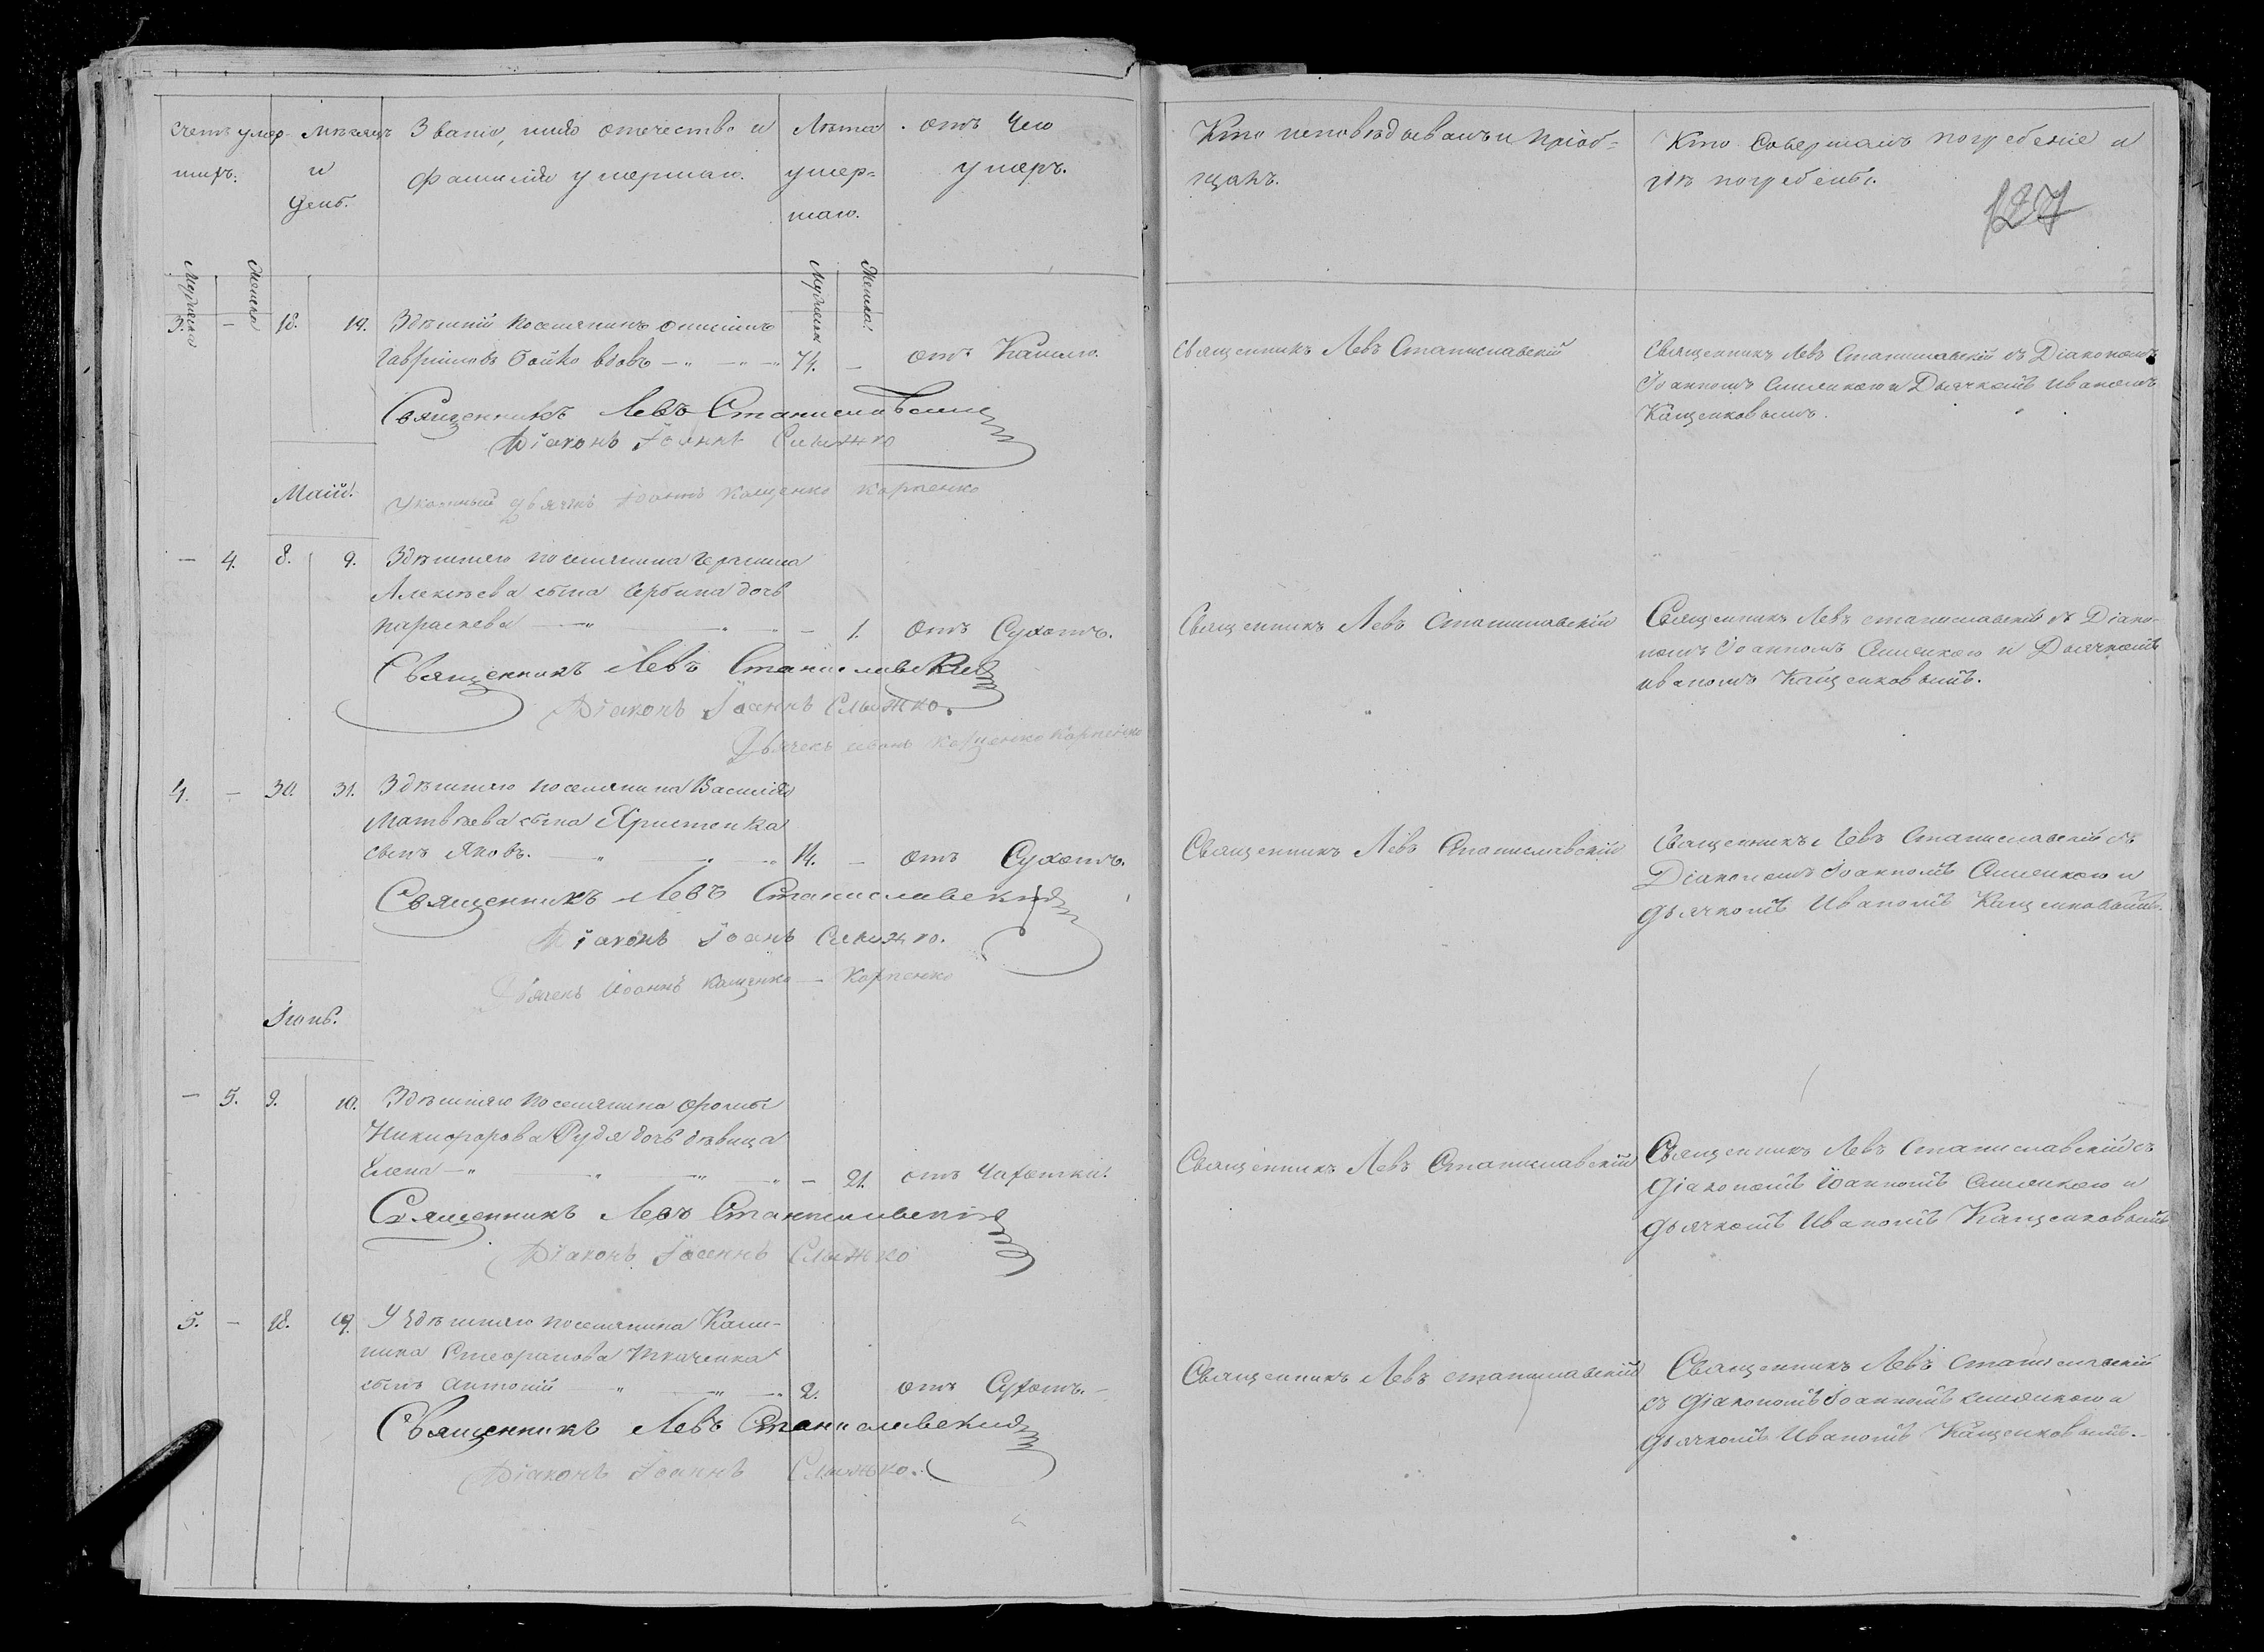 Счетъ умер-
шихъ.
Мѣсяцъ
и
день.
Званіе, имя отечество и
фамилія умершаго.
Лѣта
умер=
шаго.
отъ Чего
умеръ.
Кто исповѣдывалъ и пріоб=
щалъ.
Кто Совершалъ погребеніе и
гдѣ погребены.
127
Мужеска
Женска
Мужеска
Женска
3. — 18. 19. Здѣшній поселянинъ Онисимъ
Гавриловъ Бойко вдовъ — „ — „ 74. — отъ Кашлю.
Священникъ Левъ Станиславскій
Діаконъ Іоаннъ Слижко
Указный дьячекъ Іоаннъ Кащенко Карпенко
Священникъ Левъ Станиславскій
Священникъ Левъ Станиславскій съ Діакономъ
Іоанномъ Слижкою и Дьячкомъ Иваномъ
Кащенковымъ.
Маій.
— 4. 8. 9. Здѣшняго поселянина Герасима
Алексѣева сына Сербина дочь
Параскева — „ — „ — 1. Отъ Сухотъ.
Священникъ Левъ Станиславскій
Діаконъ Іоаннъ Слижко.
Дьячекъ Иванъ Кащенко Карпенко
Священникъ Левъ Станиславскій
Священникъ Левъ Станиславскій съ Діако-
номъ Іоанномъ Слижкою и Дьячкомъ
Иваномъ Кащенковымъ.
4. — 30. 31. Здѣшняго поселянина Василія
Матвѣева сына Христенка
сынъ Яковъ. — „ — „ 14. — отъ Сухотъ.
Священникъ Левъ Станиславскій
Діаконъ Іоанъ Слижко.
Дьячекъ Иоаннъ Кащенко — Карпенко
Священникъ Левъ Станиславскій
Священникъ Левъ Станиславскій съ
Діакономъ Іоанномъ Слижкою и
дьячкомъ Иваномъ Кащенковымъ.
Іюнь.
— 5. 9. 10. Здѣшняго поселянина Фомы
Никифорова Рудя дочь дѣвица
Елена — „ — „ — 21. отъ Чахотки.
Священникъ Левъ Станиславскій
Діаконъ Іоаннъ Слижко
Священникъ Левъ Станиславскій
Священникъ Левъ Станиславскій съ
діакономъ Іоанномъ Слижкою и
дьячкомъ Иваномъ Кащенковымъ
5. — 18. 19. У здѣшняго поселянина Кали-
ника Стефанова Ткаченка
сынъ Антоній — „ — „ 2. отъ Сухотъ. —
Священникъ Левъ Станиславскій
Діаконъ Іоаннъ Слижко.
Священникъ Левъ Станиславскій
Священникъ Левъ Станиславскій
съ діакономъ Іоанномъ Слижкою и
дьячкомъ Иваномъ Кащенковымъ.